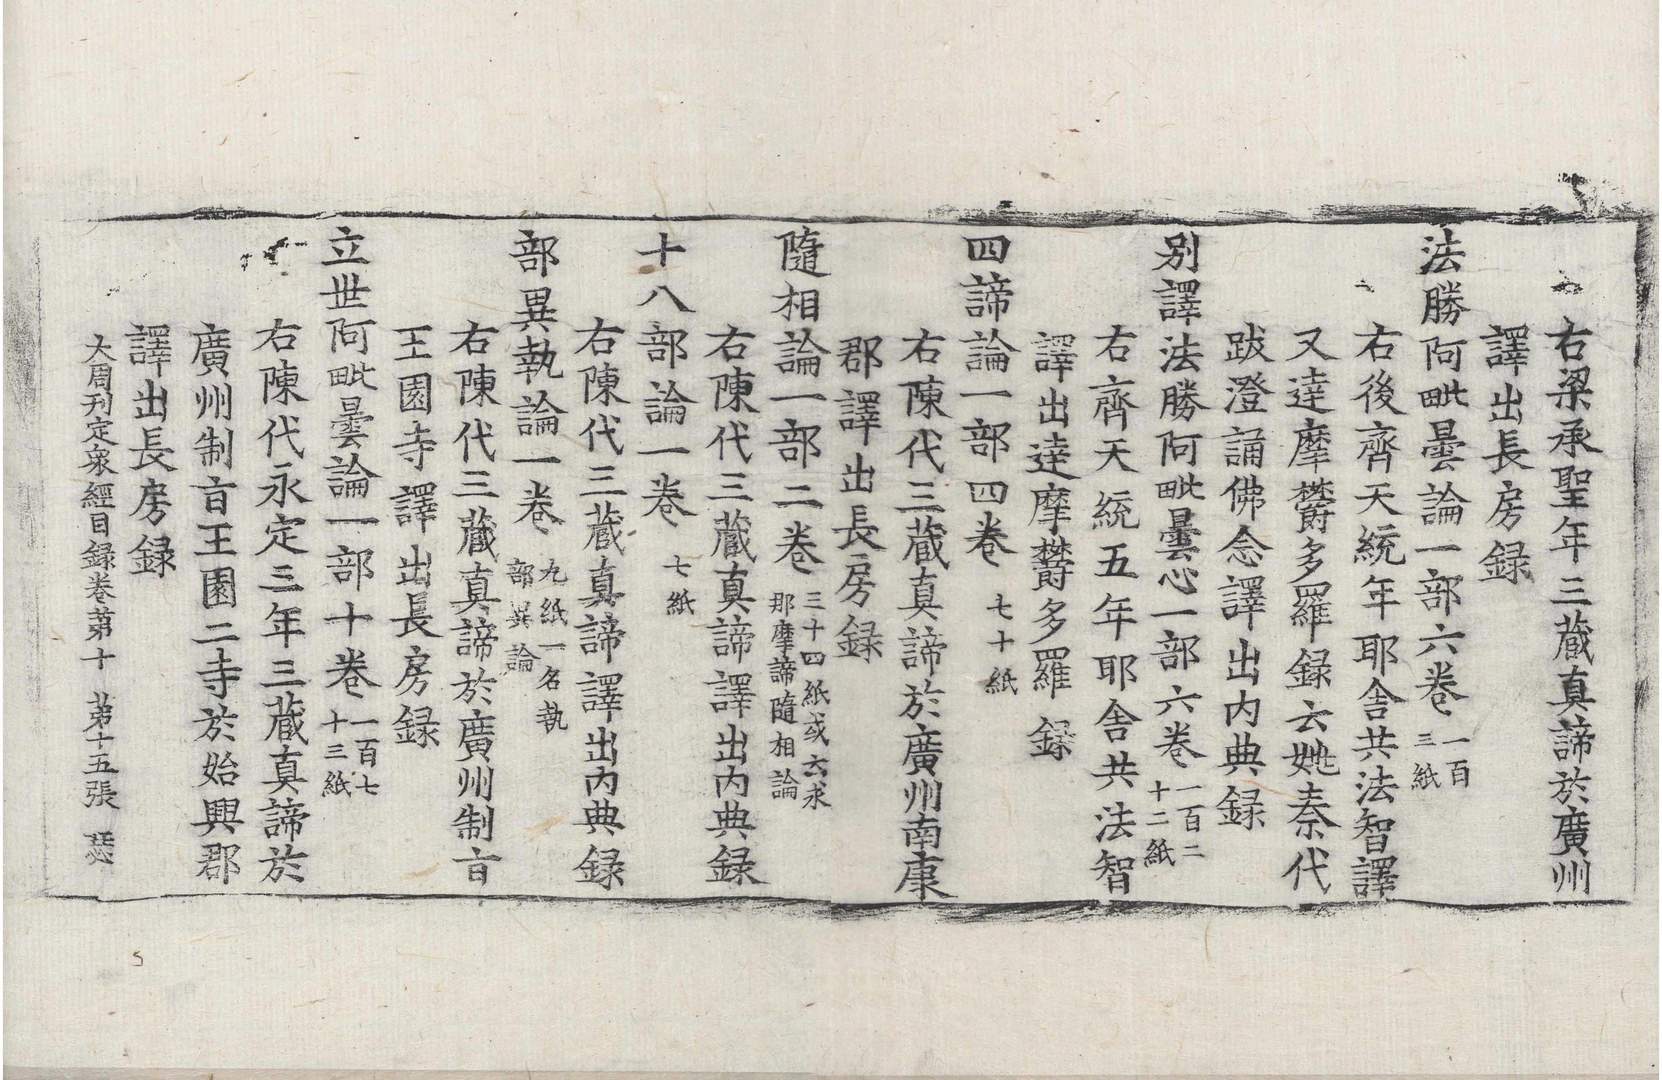 右梁承聖年三藏真諦於廣州
譯出長房録
法勝阿毗曇論一部六卷一百三紙
右後齊天統年耶舍共法智譯
又達摩欝多羅録云姚秦代
跋澄誦佛念譯出内典録
别譯法勝阿毗曇心一部六卷一百二十二紙
右齊天統五年耶舍共法智
譯出達摩欝多羅録
四諦論一部四卷七十紙
右陳代三藏真諦於廣州南康
郡譯出長房録
隨相論一部二卷三十四紙或云求那摩諦隨相論
右陳代三藏真諦譯出内典録
十八部論一卷七紙
右陳代三藏真諦譯出内典録
部異執論一卷九紙一名執部異論
右陳代三藏真諦於廣州制㫖
王園寺譯出長房録
立世阿毗曇論一部十卷一百七十三紙
右陳代永定三年三藏真諦於
廣州制㫖王園二寺於始興郡
譯出長房録
大周刊定衆經目録卷苐十 苐十五張